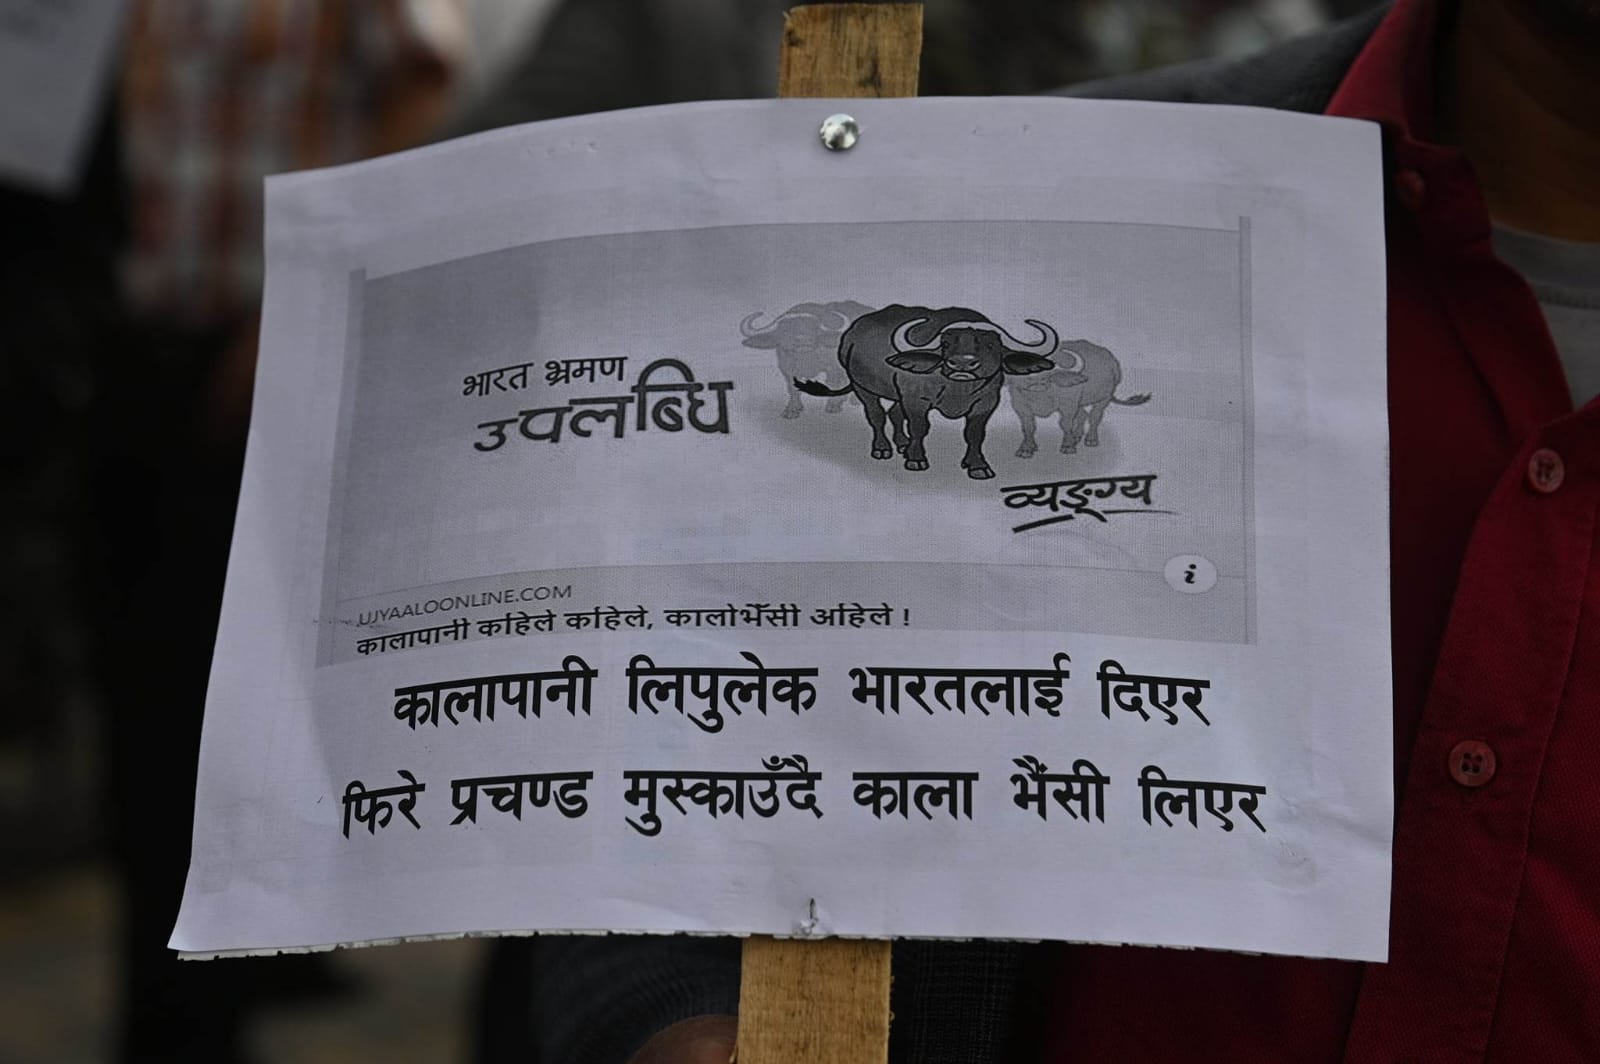 भारत भ्रमण
उपलब्धि
व्यङ्ग्य
i
UJYAALOONLINE.COM
कालापानी कहिले कहिले, कालोभैँसी अहिले !
कालापानी लिपुलेक भारतलाई दिएर
फिरे प्रचण्ड मुस्काउँदै काला भैंसी लिएर